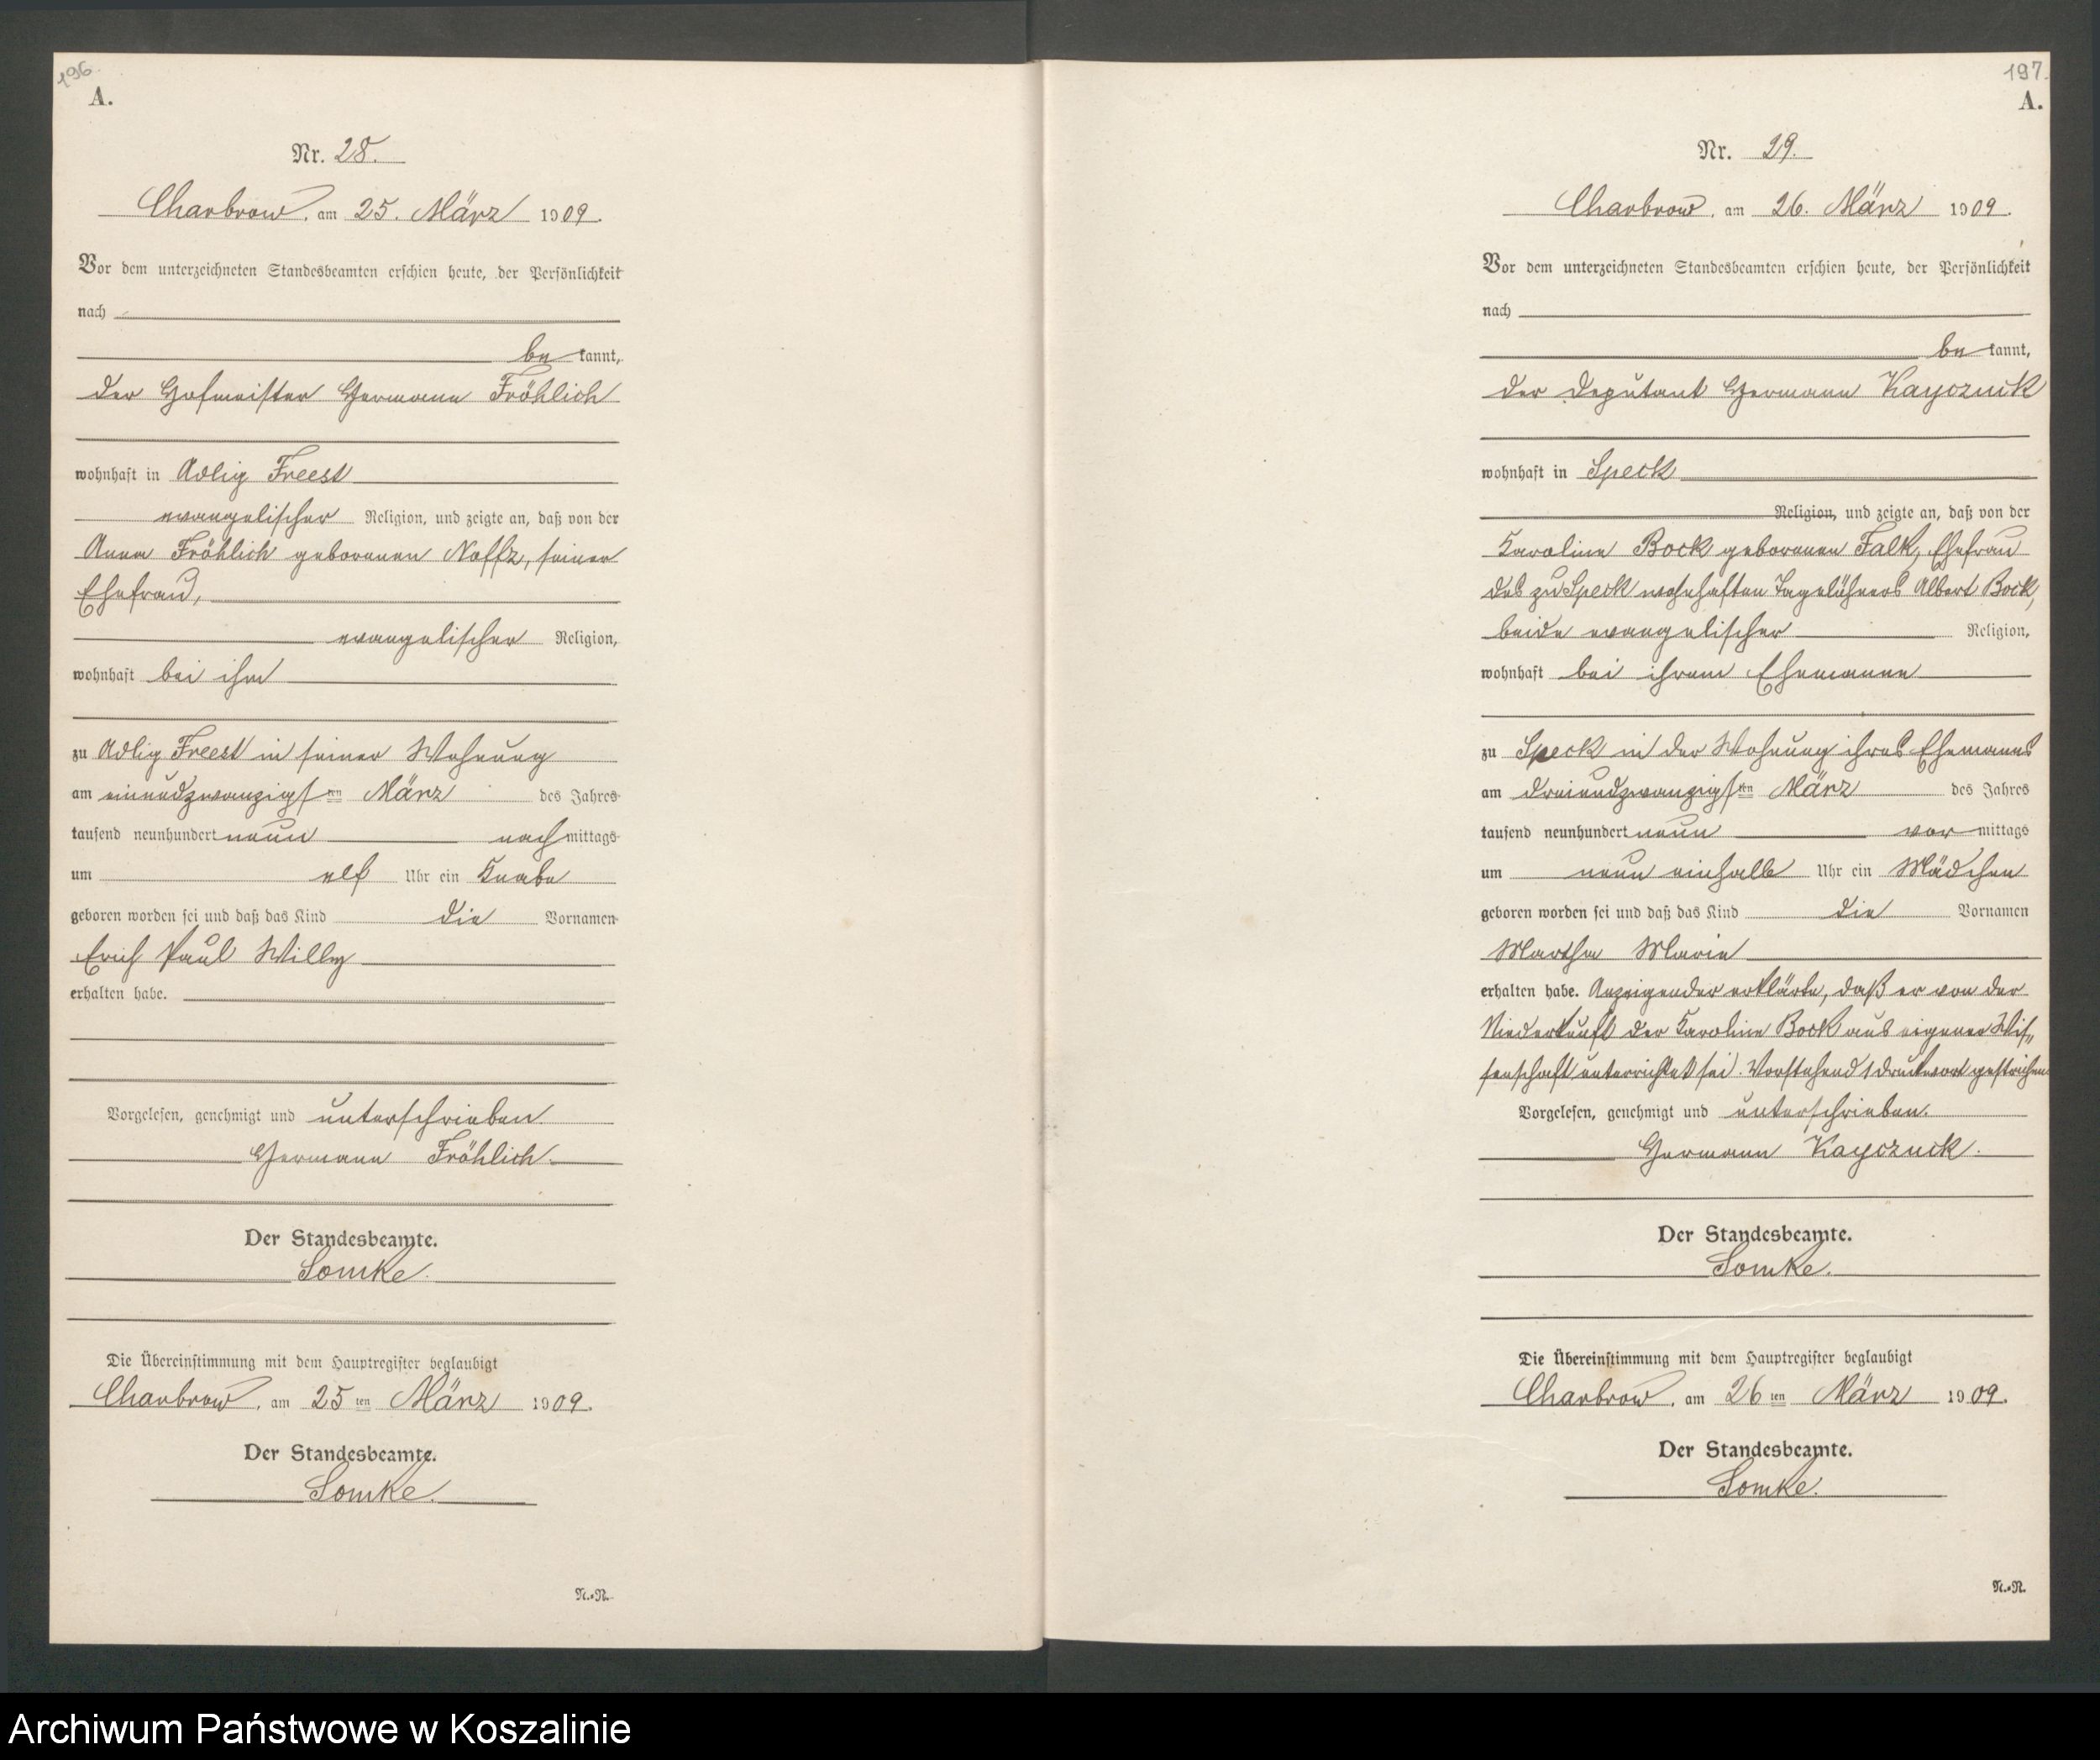 196.
A.
Nr. 28.
Charbrow, am 25. März 1909.
Vor dem unterzeichneten Standesbeamten erschien heute, der Persönlichkeit
nach
be kannt,
der Hofmeister Hermann Fröhlich
wohnhaft in Adlig Freest
evangelischer Religion, und zeigte an, daß von der
Anna Fröhlich geborenen Noffz, seiner
Ehefrau,
evangelischer Religion,
wohnhaft bei ihm
zu Adlig Freest in seiner Wohnung
am einundzwanzigsten März des Jahres
tausend neunhundert neun nachmittags
um elf Uhr ein Knabe
geboren worden sei und daß das Kind die Vornamen
Erich Paul Willy
erhalten habe.
Vorgelesen, genehmigt und unterschrieben.
Hermann Fröhlich.
Der Standesbeamte.
Lomke.
Die Übereinstimmung mit dem Hauptregister beglaubigt
Charbrow, am 25ten März 1909.
Der Standesbeamte.
Lomke.
N.-R.
197.
A.
Nr. 29.
Charbrow, am 26. März 1909.
Vor dem unterzeichneten Standesbeamten erschien heute, der Persönlichkeit
nach
be kannt,
der Deputant Hermann Kayczuck
wohnhaft in Speck
Religion, und zeigte an, daß von der
Karoline Bock geborenen Falk, Ehefrau
des zu Speck wohnhaften Tagelöhners Albert Bock,
beide evangelischer Religion,
wohnhaft bei ihrem Ehemanne
zu Speck in der Wohnung ihres Ehemanns
am dreiundzwanzigsten März des Jahres
tausend neunhundert neun vormittags
um neun einhalb Uhr ein Mädchen
geboren worden sei und daß das Kind die Vornamen
Martha Marie
erhalten habe. Anzeigender erklärte, daß er von der
Niederkunft der Karoline Bock aus eigener Wis„
senschaft unterrichtet sei. Vorstehend 1 Druckwort gestrichen.
Vorgelesen, genehmigt und unterschrieben.
Hermann Kayczuck.
Der Standesbeamte.
Lomke.
Die Übereinstimmung mit dem Hauptregister beglaubigt
Charbrow, am 26ten März 1909.
Der Standesbeamte.
Lomke.
N.-R.
Archiwum Państwowe w Koszalinie